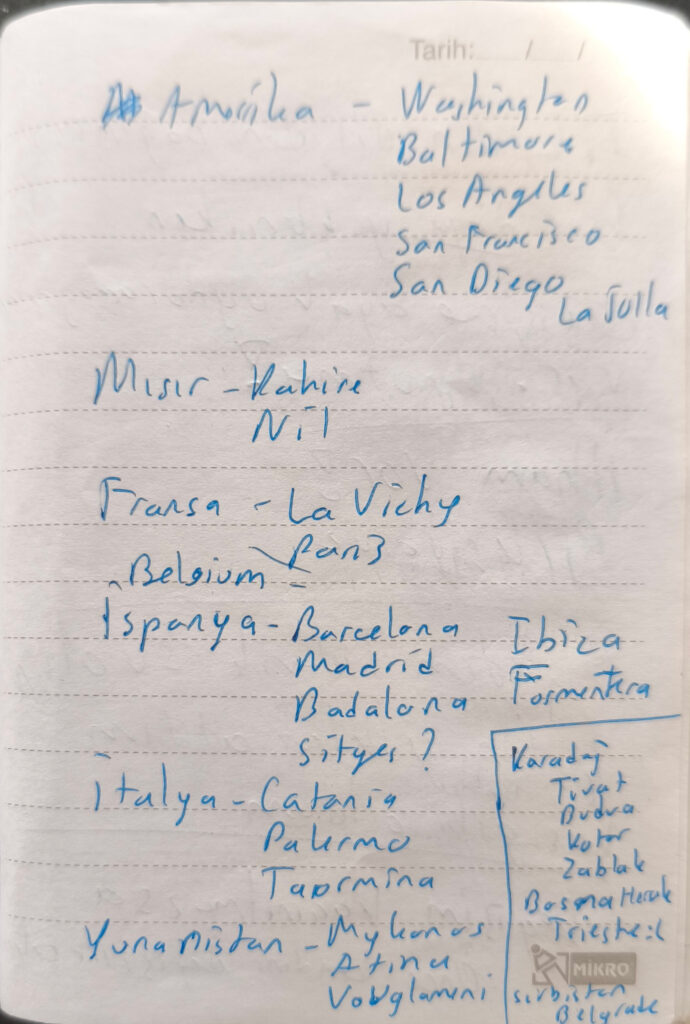 Tarih: / /
Amerika - Washington
Baltimore
Los Angeles
San Francisco
San Diego
La Jolla
Mısır - Kahire
Nil
Fransa - La Vichy
Belgium -
İspanya - Barcelona
Madrid
Badalona
Sityes?
Ibiza
Formentera
İtalya - Catania
Palermo
Taormina
Yunanistan - Mykonos
Atina
Karadaj
Tivat
Budva
Kotor
Zablak
Bosna Hersek
Sırbistan
Belgrade
MİKRO